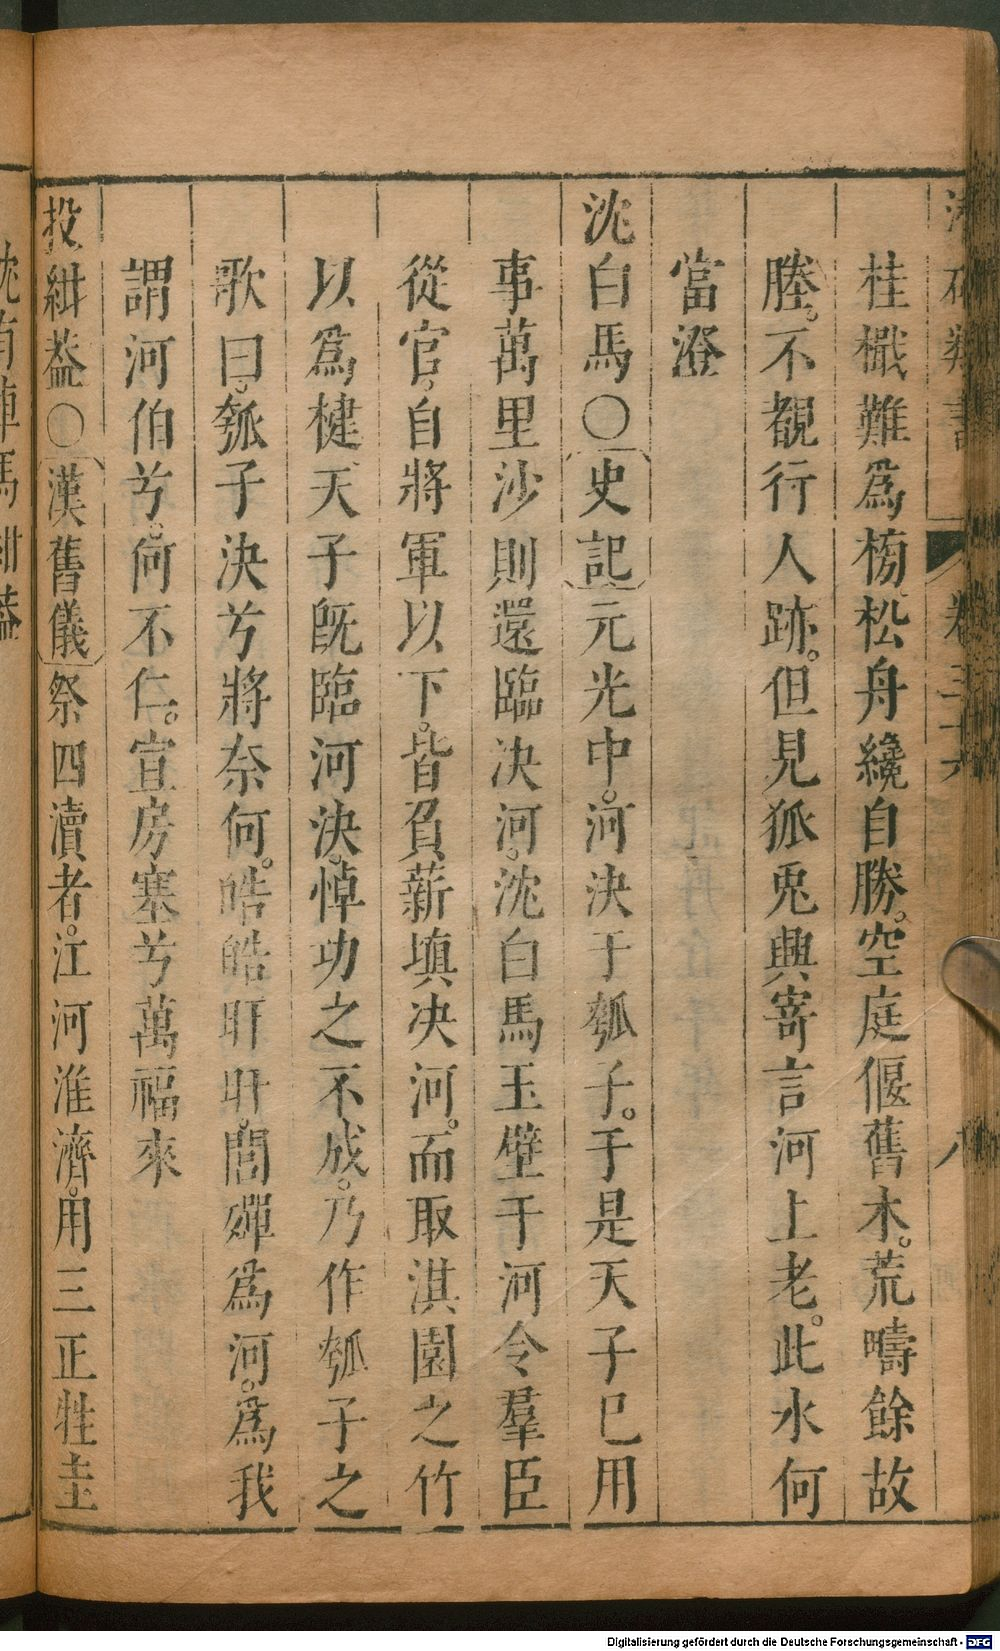 桂檝難爲榜松舟纔自勝空庭偃舊木荒疇餘故
塍不覩行人跡但見狐兎興寄言河上老此水何
當澄
沈白馬〇史記元光中河決于瓠子于是天子已用
事萬里沙則還臨决河沈白馬玉璧于河令羣臣
從官自將軍以下皆負薪填决河而取淇園之竹
以爲楗天子旣臨河決悼功之不成乃作瓠子之
歌曰瓠子決兮將奈何皓皓旰旰閭殫爲河爲我
謂河伯兮何不仁宣房塞兮萬福來
投紺葢〇漢舊儀祭四瀆者江河淮濟用三正牲圭
沈有車馬紺葢
卷三十六
八
Digitalisierung gefördert durch die Deutsche Forschungsgemeinschaft - DFG